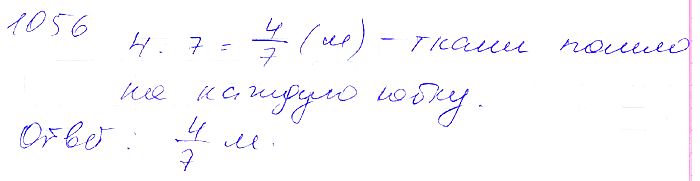 1056
4 : 7 = 4/7 (м) - ткани пошло
на каждую юбку.
Ответ : 4/7 м.